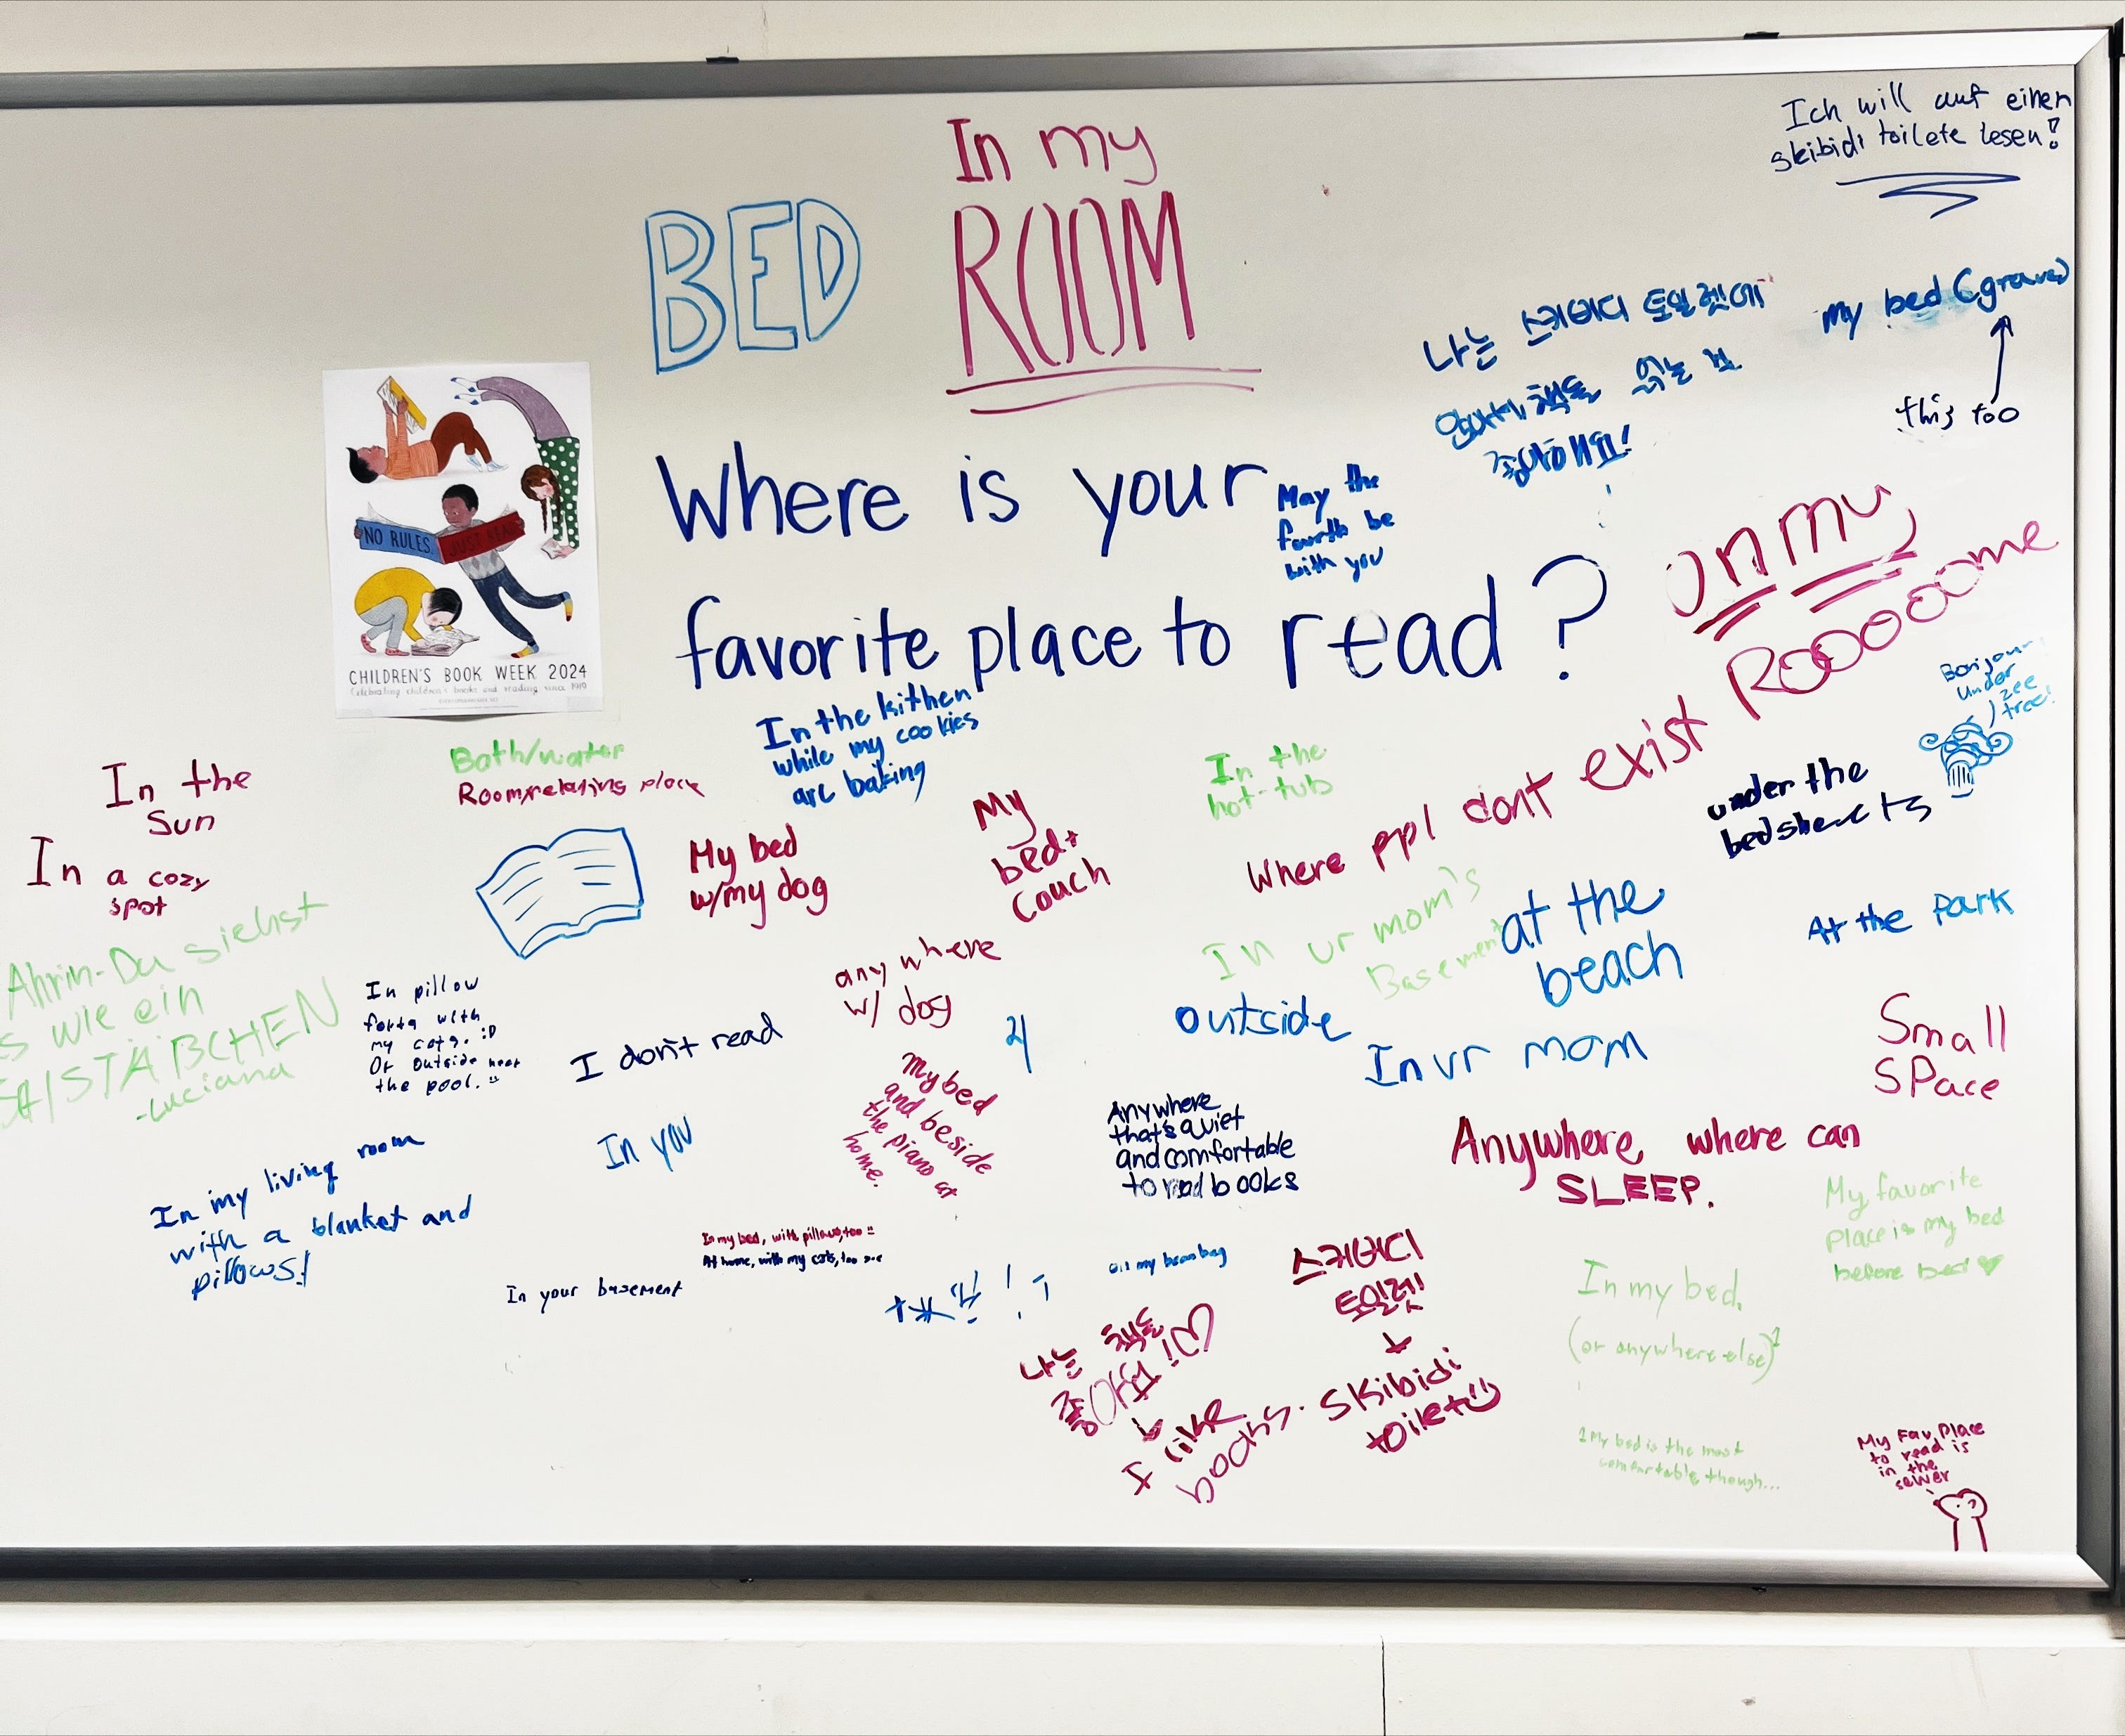 Ich will auf einen
skibidi toilete lesen!
In my
ROOM
BED
my bed (grave)
this too
나는 스키비디 토일렛에
앉아서 책을 읽는 걸
좋아해요!
Where is your
favorite place to read?
May the
fourth be
with you
NO RULES.
JUST READ.
CHILDREN'S BOOK WEEK 2024
Celebrating children's books and reading since 1919
On my
Roooooome
Bonjour
under
zee
tree!
In the kithen
while my cookies
are baking
Bath/water
Room/relating place
In the
hot-tub
In the
Sun
In a cozy
spot
My bed
w/my dog
My
bed+
Couch
Where ppl dont exist
under the
bedsheets
In ur mom's
Basement
at the
beach
At the Park
Ahrin-Du siehst
wie ein
STÄBCHEN
-Luciana
In pillow
forts with
my cats. :D
Or outside near
the pool.
I don't read
any where
w/ dog
outside
In ur mom
Small
SPace
My bed
and beside
the piano at
home.
In you
Anywhere
that's quiet
and comfortable
to read books
Anywhere where can
SLEEP.
In my living room
with a blanket and
pillows!
In my bed, with pillows, too
At home, with my cats, too
In your basement
on my bean bag
My favorite
Place is my bed
before bed ♥
In my bed.
(or anywhere else)¹
1 My bed is the most
comfortable though...
스키비디
토일렛
↓
Skibidi
toilet
나는 책을
좋아요! ♡
↓
I like
books.
My Fav. Place
to read is
in the
sewer